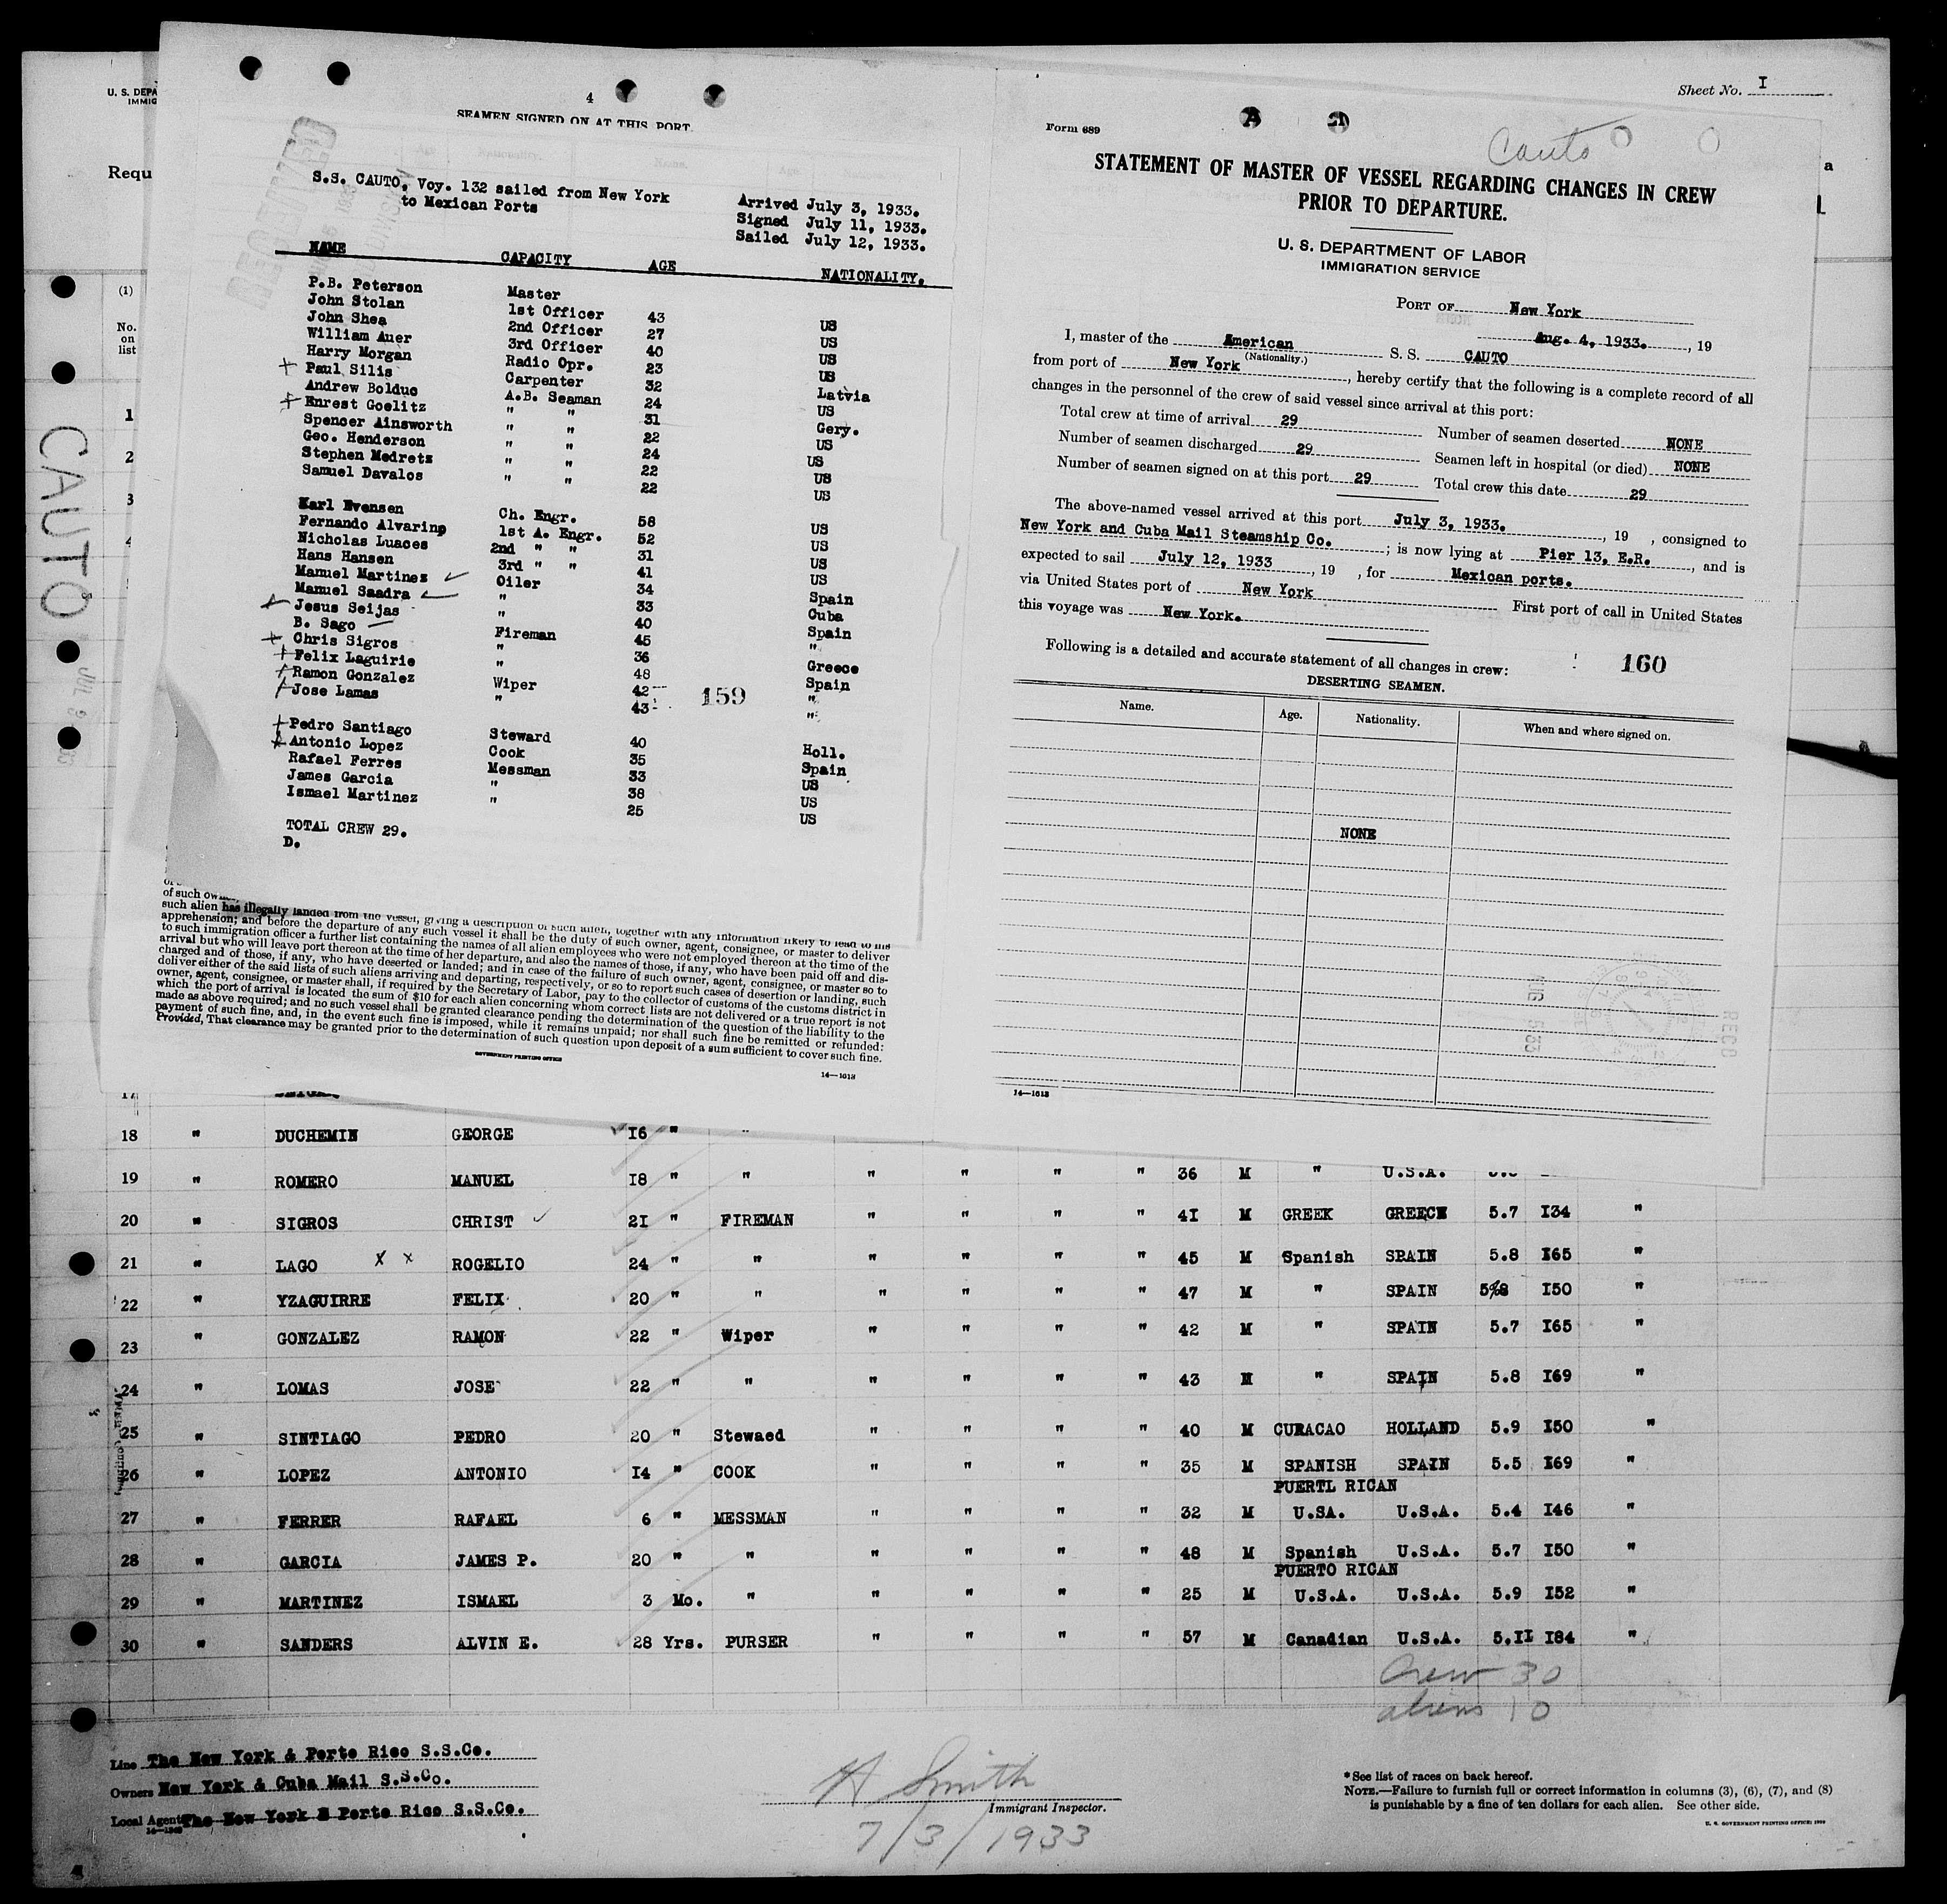 U. S. DEPA
IMMIG
Requ
(1)
No.
on
list
1
2
3
4
CAUTO
4
SEAMEN SIGNED ON AT THIS PORT.
S.S. CAUTO, Voy. 132 sailed from New York
to Mexican Ports
Arrived July 3, 1933.
Signed July 11, 1933.
Sailed July 12, 1933.
NAME CAPACITY AGE NATIONALITY.
P.B. Peterson Master
John Stolan 1st Officer 43 US
John Shea 2nd Officer 27 US
William Auer 3rd Officer 40 US
Harry Morgan Radio Opr. 23 US
Paul Silis Carpenter 32 Latvia
Andrew Bolduc A.B. Seaman 24 US
Enrest Goelitz " " 31 Gery.
Spencer Ainsworth " " 22 US
Geo. Henderson " " 24 US
Stephen Medretz " " 22 US
Samuel Davalos " " 22 US
Karl Evensen Ch. Engr. 58 US
Fernando Alvarinp 1st A. Engr. 52 US
Nicholas Luaces 2nd " " 31 US
Hans Hansen 3rd " " 41 US
Manuel Martinez Oiler 34 Spain
Manuel Saadra " 33 Cuba
Jesus Seijas " 40 Spain
B. Sago Fireman 45 "
Chris Sigros " 36 Greece
Felix Laguirie " 48 Spain
Ramon Gonzalez Wiper 42 "
Jose Lamas " 43 "
159
Pedro Santiago Steward 40 Holl.
Antonio Lopez Cook 35 Spain
Rafael Ferres Messman 33 US
James Garcia " 38 US
Ismael Martinez " 25 US
TOTAL CREW 29.
D.
of such own
such alien has illegally landed from the vessel, giving a description of such alien, together with any information likely to lead to his
apprehension; and before the departure of any such vessel it shall be the duty of such owner, agent, consignee, or master to deliver
to such immigration officer a further list containing the names of all alien employees who were not employed thereon at the time of the
arrival but who will leave port thereon at the time of her departure, and also the names of those, if any, who have been paid off and dis-
charged and of those, if any, who have deserted or landed; and in case of the failure of such owner, agent, consignee, or master so to
deliver either of the said lists of such aliens arriving and departing, respectively, or so to report such cases of desertion or landing, such
owner, agent, consignee, or master shall, if required by the Secretary of Labor, pay to the collector of customs of the customs district in
which the port of arrival is located the sum of $10 for each alien concerning whom correct lists are not delivered or a true report is not
made as above required; and no such vessel shall be granted clearance pending the determination of the question of the liability to the
payment of such fine, and, in the event such fine is imposed, while it remains unpaid; nor shall such fine be remitted or refunded:
Provided, That clearance may be granted prior to the determination of such question upon deposit of a sum sufficient to cover such fine.
GOVERNMENT PRINTING OFFICE
14—1013
Sheet No. I
Form 689
Cauto
STATEMENT OF MASTER OF VESSEL REGARDING CHANGES IN CREW
PRIOR TO DEPARTURE.
U. S. DEPARTMENT OF LABOR
IMMIGRATION SERVICE
PORT OF New York
Aug. 4, 1933. , 19
I, master of the American S. S. CAUTO
(Nationality.)
from port of New York , hereby certify that the following is a complete record of all
changes in the personnel of the crew of said vessel since arrival at this port:
Total crew at time of arrival 29 Number of seamen deserted NONE
Number of seamen discharged 29 Seamen left in hospital (or died) NONE
Number of seamen signed on at this port 29 Total crew this date 29
The above-named vessel arrived at this port July 3, 1933. , 19 , consigned to
New York and Cuba Mail Steamship Co. ; is now lying at Pier 13, E.R. , and is
expected to sail July 12, 1933 , 19 , for Mexican ports.
via United States port of New York First port of call in United States
this voyage was New York.
Following is a detailed and accurate statement of all changes in crew:
160
DESERTING SEAMEN.
Name. Age. Nationality. When and where signed on.
NONE
AUG 5 33
RECD
14—1013
17
18 " DUCHEMIN GEORGE 16 " "
19 " ROMERO MANUEL 18 " " " " " " 36 M " U.S.A.
20 " SIGROS CHRIST 21 " FIREMAN " " " " 41 M GREEK GREECE 5.7 134 "
21 " LAGO X x ROGELIO 24 " " " " " " 45 M Spanish SPAIN 5.8 165 "
22 " YZAGUIRRE FELIX 20 " " " " " " 47 M " SPAIN 5 8 150 "
23 " GONZALEZ RAMON 22 " Wiper " " " " 42 M " SPAIN 5.7 165 "
24 " LOMAS JOSE 22 " " " " " " 43 M " SPAIN 5.8 169 "
25 " SINTIAGO PEDRO 20 " Stewaed " " " " 40 M CURACAO HOLLAND 5.9 150 "
26 " LOPEZ ANTONIO 14 " COOK " " " " 35 M SPANISH SPAIN 5.5 169 "
PUERTL RICAN
27 " FERRER RAFAEL 6 " MESSMAN " " " " 32 M U.SA. U.S.A. 5.4 146 "
28 " GARCIA JAMES P. 20 " " " " " " 48 M Spanish U.S.A. 5.7 150 "
PUERTO RICAN
29 " MARTINEZ ISMAEL 3 Mo. " " " " " 25 M U.S.A. U.S.A. 5.9 152 "
30 " SANDERS ALVIN E. 28 Yrs. PURSER " " " " 57 M Canadian U.S.A. 5.11 184 "
Crew 30
aliens 10
Line The New York & Porto Rico S.S.Co.
Owners New York & Cuba Mail S.S.Co.
Local Agents The New York & Porto Rico S.S.Co.
H Smith
Immigrant Inspector.
7/3/1933
* See list of races on back hereof.
NOTE.—Failure to furnish full or correct information in columns (3), (6), (7), and (8)
is punishable by a fine of ten dollars for each alien. See other side.
U. S. GOVERNMENT PRINTING OFFICE: 1929